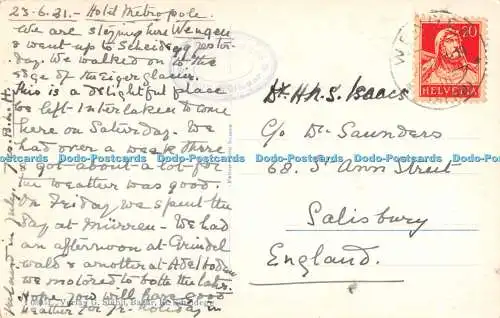 23-6-31.- Hotel Metropole.
We are staying here Wengen
& went up to Scheidegg yester-
day. We walked on to the
edge of the Eiger glacier.
This is a delightful place
We left Interlaken to come
here on Saturday. We
had over a week there
& got about a lot for
the weather was good.
On Friday we spent the
day at Mürren. We had
an afternoon at Grindel
wald & another at Adelboden
we motored to both the latter.
Hope you will have good
weather for yr. holiday in
20
HELVETIA
Dr. H.N.S. Isaacs
C/o Dr. Saunders
68. St Ann Street
Salisbury
England.
Dodo-Postcards Dodo-Postcards Dodo-Postcards Dodo-Postcards Dodo-Postcards Dodo-Postcards